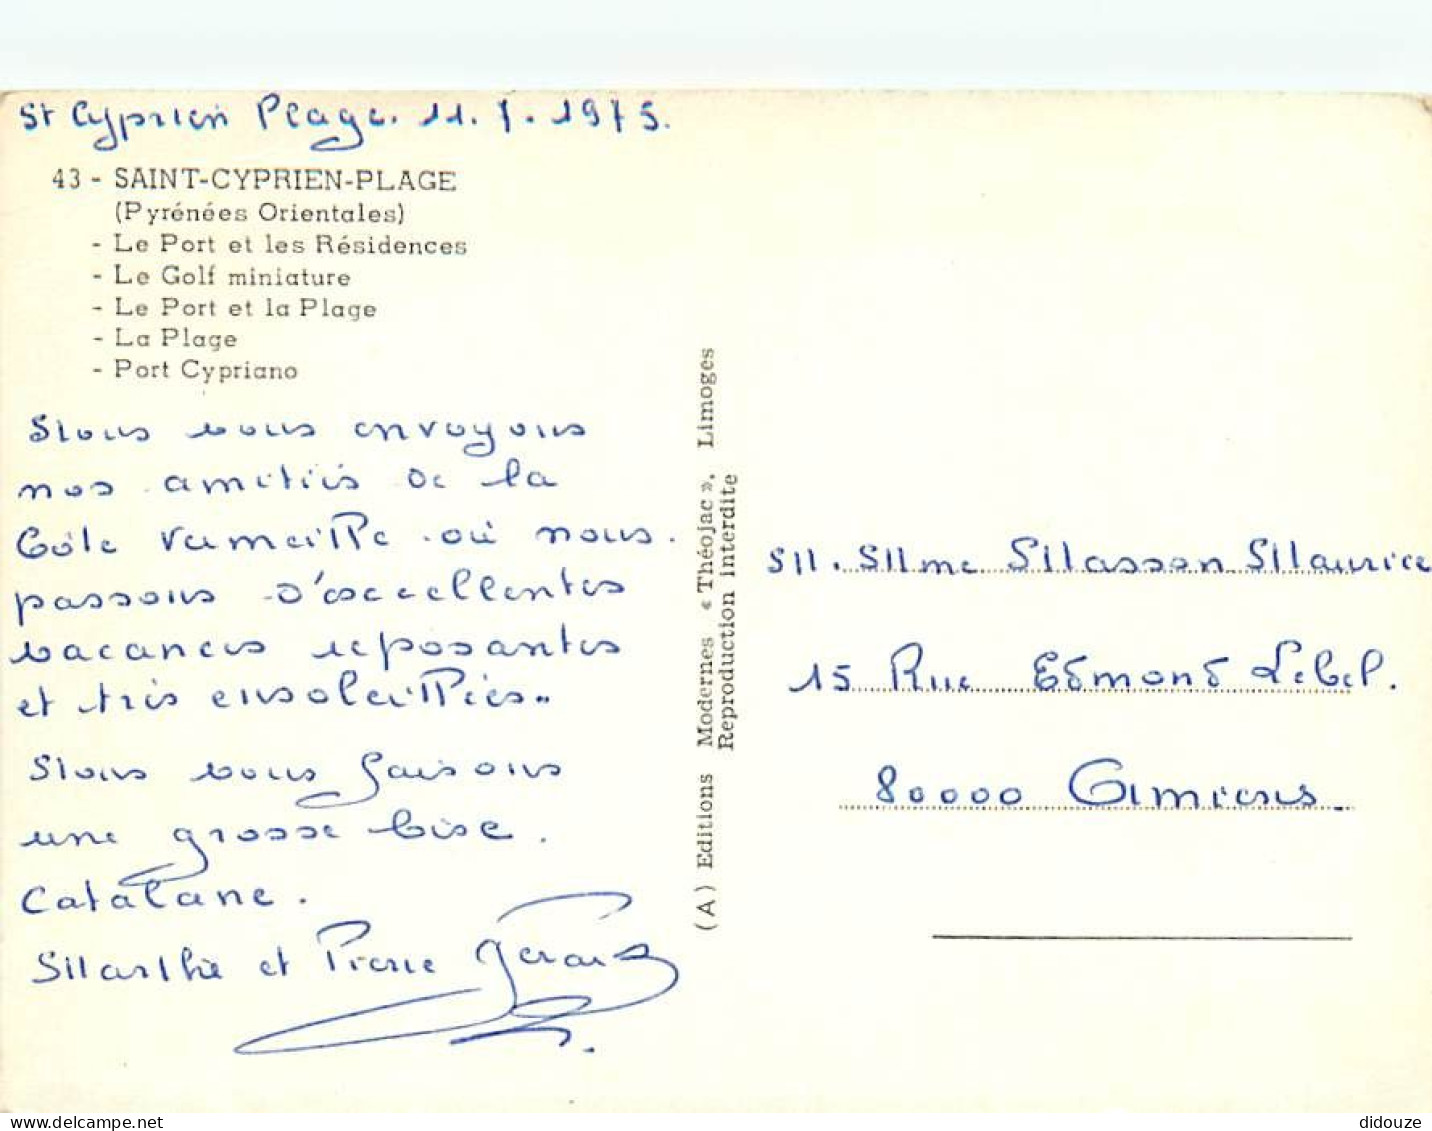 St Cyprien Plage. 11.7.1975.
43 - SAINT-CYPRIEN-PLAGE
(Pyrénées Orientales)
- Le Port et les Résidences
- Le Golf miniature
- Le Port et la Plage
- La Plage
- Port Cypriano
Nous vous envoyons
nos amitiés de la
Côte Vermeille où nous
passons d'excellentes
vacances reposantes
et très ensoleillées..
Nous vous faisons
une grosse bise.
Catalane.
Marthe et Pierre Gerard
(A) Editions Modernes « Théojac ». Limoges
Reproduction interdite
M. Mme Masson Maurice
15 Rue Edmond Lebel.
80000 Amiens.
delcampe.net
didouze